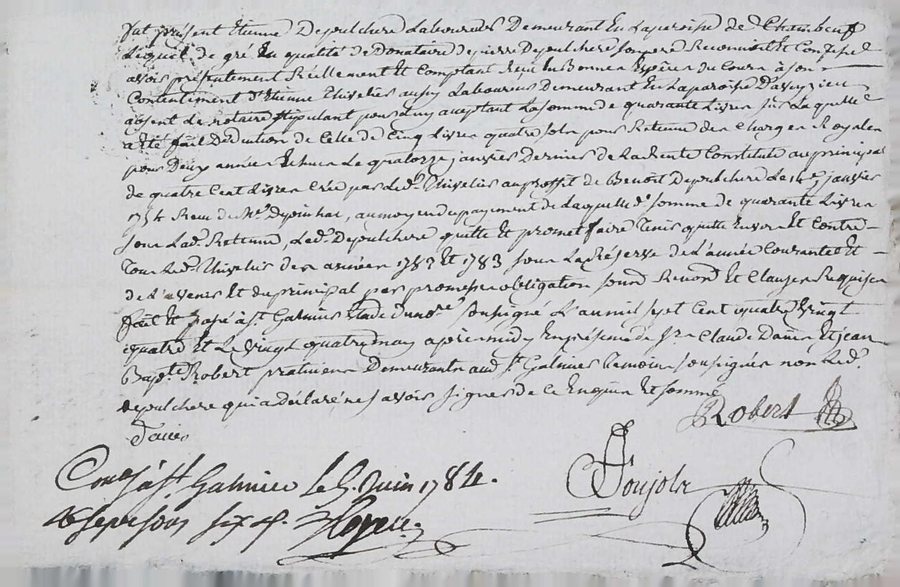 fut présent Etienne Depulchere Laboureur Demeurant En Laparoisse de Chambeuf
Lequel de gré En qualité de Donataire de pierre Depulchere Sonpere Reconnoit Et Confesse
avoir présentement Réellement Et Comptant Reçu En Bonnes Espèces du Cours à son
Contentement d'Etienne Thivelier aussy Laboureur Demeurant En Laparoisse
absent Le notaire Stipulant pour Luy aceptant La somme de quarante Livres sur Laquelle
a été fait Déduction de Celle de Cinq Livres quatre sols pour Retenue des Charges Royales
pour Deux années Echues Le quatorze janvier Dernier de La Rente Constituée au principal
de quatre Cent Livres Créé par Led. Thivelier au proffit de Benoit Depulchere Le 14e janvier
1754 Reçu de Me aumoyen du payement de Laquelle de somme de quarante Livres
sous Lad. Retenue, Led. Depulchere quitte Et promet faire Tenir quitte Envers Et Contre
Tous Led. Thivelier des années 1782 Et 1783 sous La Réserve de L'année Courante Et
de L'avenir Et du principal par promesse obligation soum. Renon. Et Clauses Requises
fait Et passé à St. Galmier Etude du no.re soussigné L'an mil sept Cent quatre vingt
quatre Et Le vingt quatre may après midy En présence de Sr. Claude Et jean
Bapt. Robert praticiens Demeurants aud. St. Galmier Temoins soussignés non Led.
Depulchere qui a déclaré ne savoir signer de ce Enquis Et sommé
Robert
Conlé à St. Galmier Le 5. Juin 1784.
Rc sept sous six d.